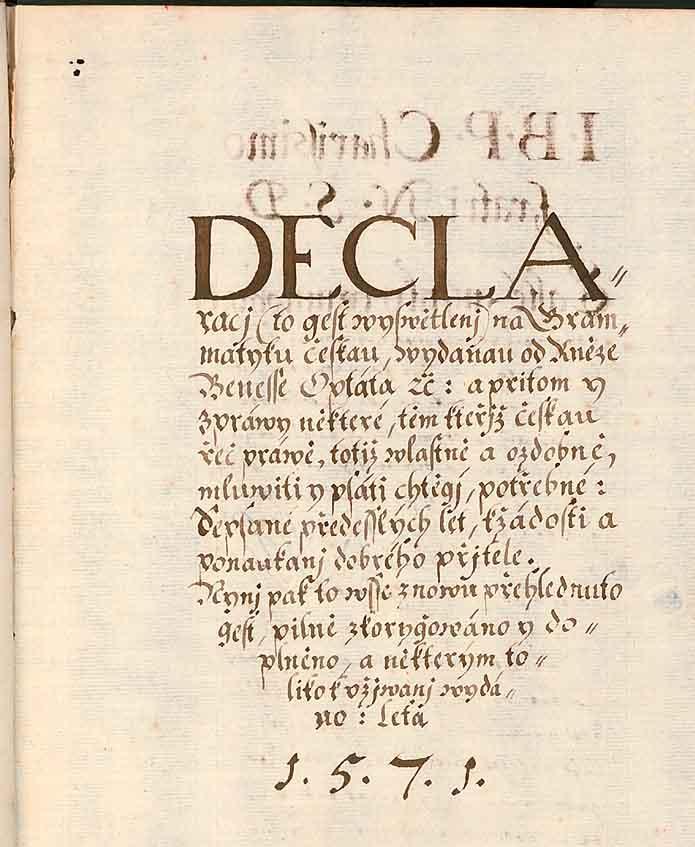 DECLA⸗
racj (to gest wyswětlenj) na Gram⸗
matyku českau, wydanau od Kněze
Benesse Optáta ꝛč: a přitom y
zpráwy některé, těm kteřjž českau
řeč práwě, totiž wlastně a ozdobně,
mluwiti y psáti chtěgj, potřebné:
Sepsané předesslých let, k žádosti a
ponaukanj dobrého přjtele.
Nynj pak to wsse znowu přehlédnuto
gest, pilně zkorygowáno y do⸗
plněno, a některým to⸗
liko k vžjwanj wydá⸗
no: Léta
1. 5. 7. 1.